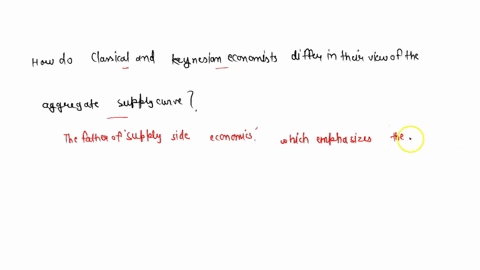 How do classical and keynesian economists differ in their view of the
aggregate supply curve?
The father of 'supply side economis' which emphasizes the